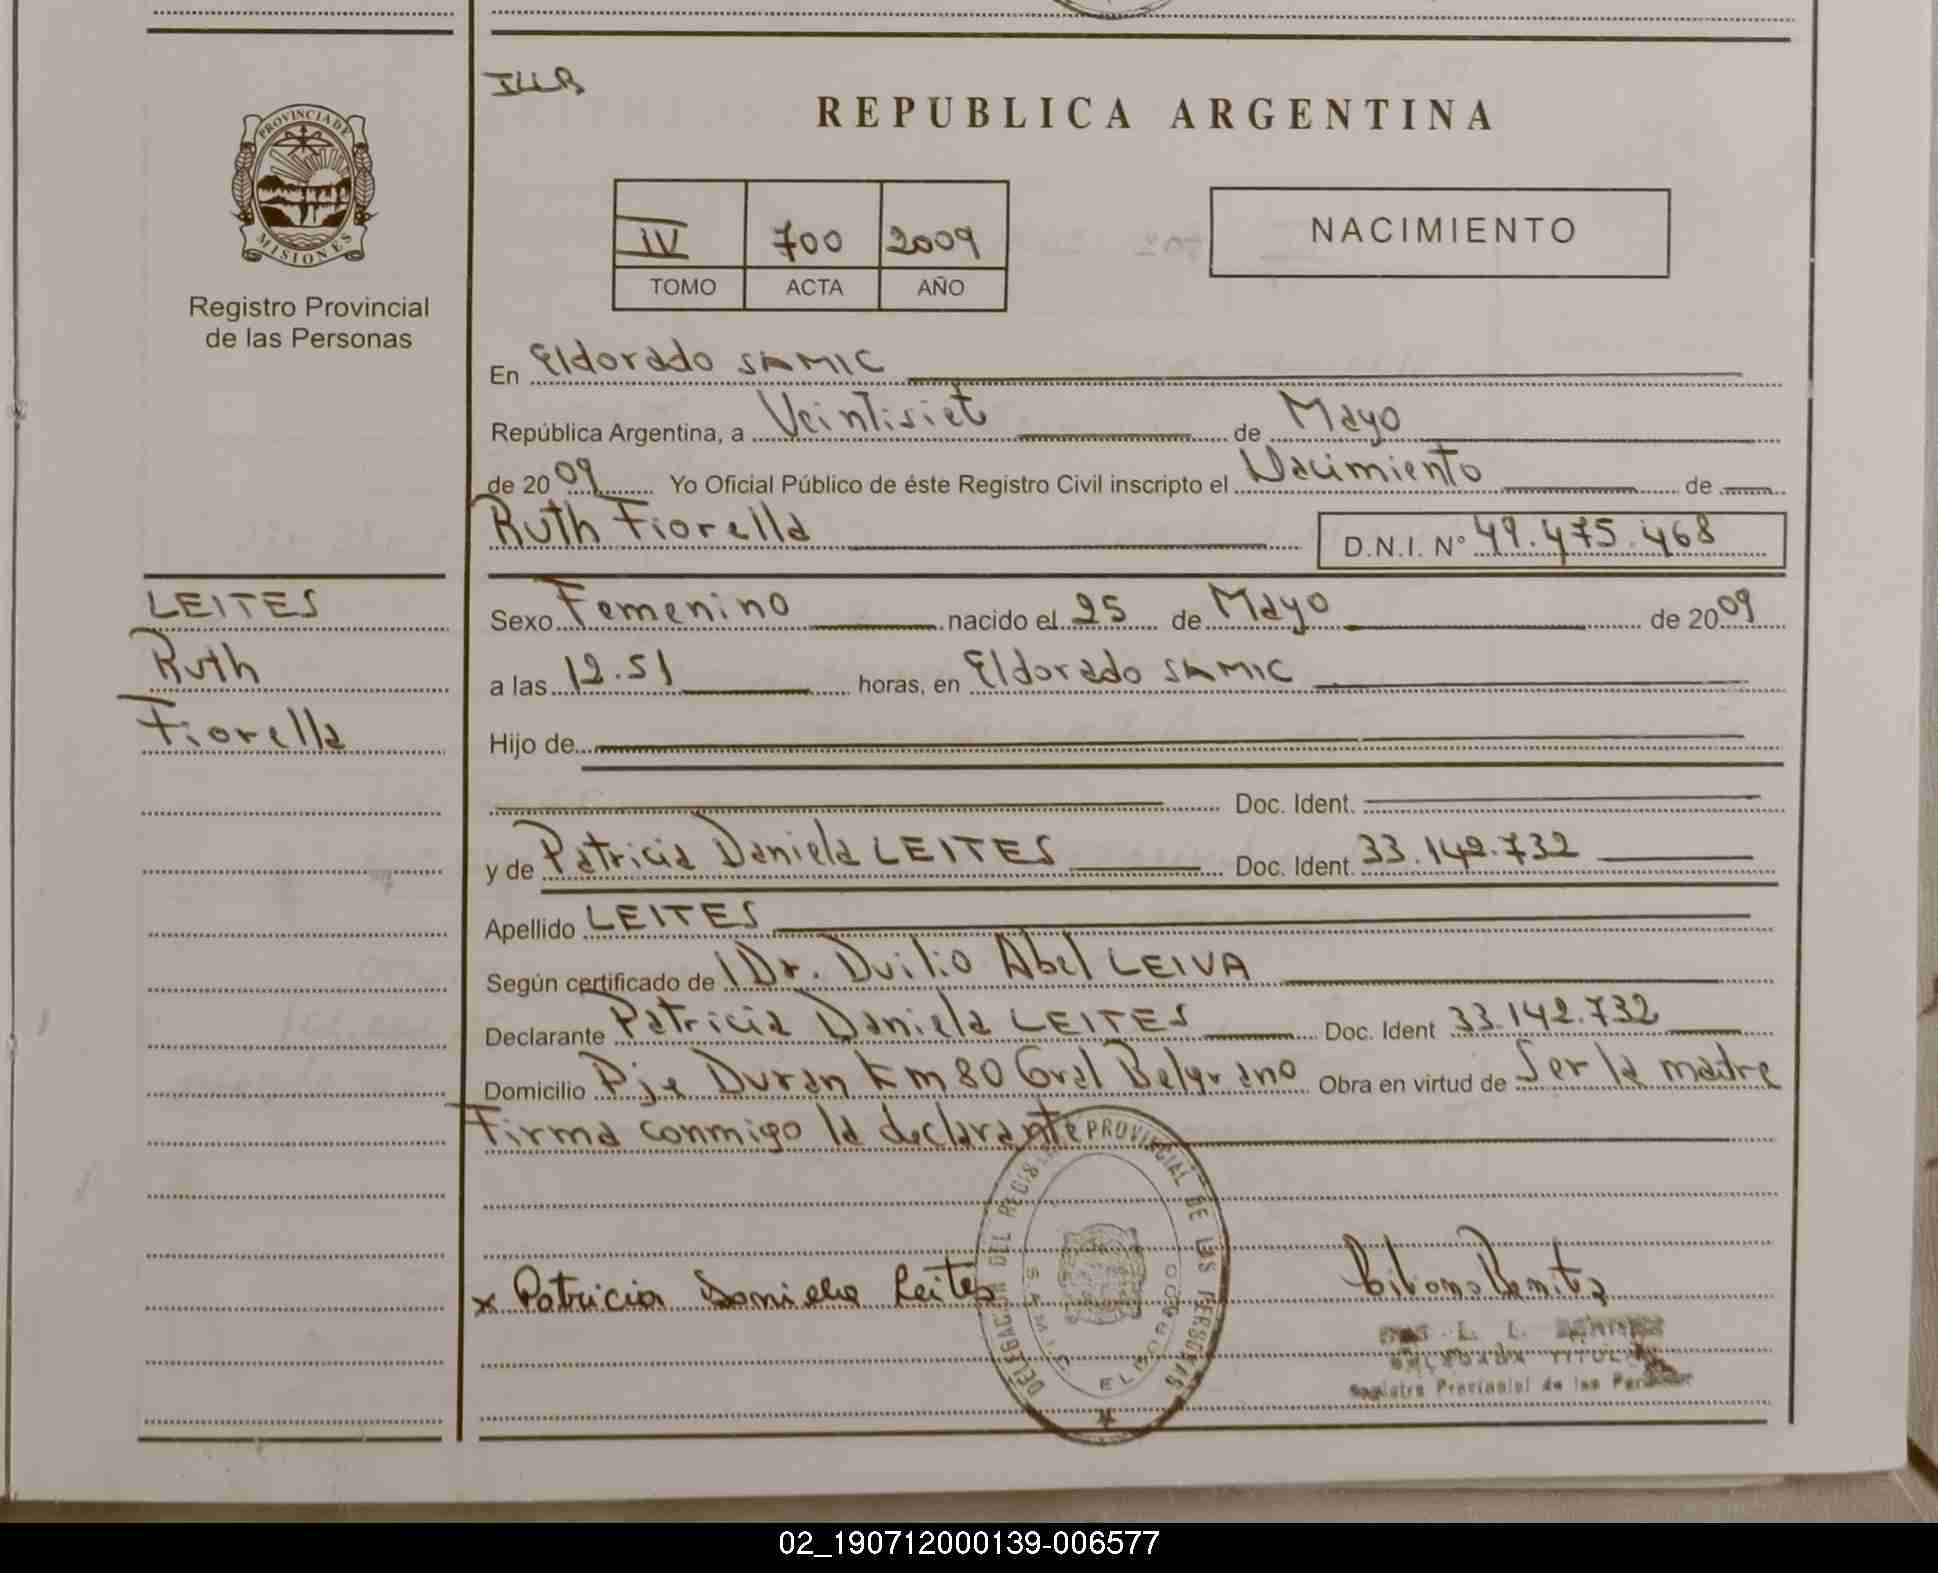 PROVINCIA DE
MISIONES
Registro Provincial
de las Personas
LEITES
Ruth
Fiorella
REPUBLICA ARGENTINA
IV 700 2009
TOMO ACTA AÑO
NACIMIENTO
En Eldorado SAMIC
República Argentina, a Veintisiete de Mayo
de 2009 Yo Oficial Público de éste Registro Civil inscripto el Nacimiento de
Ruth Fiorella D.N.I. N° 49.475.468
Sexo Femenino nacido el 25 de Mayo de 2009
a las 12.51 horas, en Eldorado SAMIC
Hijo de
Doc. Ident.
y de Patricia Daniela LEITES Doc. Ident. 33.142.732
Apellido LEITES
Según certificado de Dr. Duilio Abel LEIVA
Declarante Patricia Daniela LEITES Doc. Ident 33.142.732
Domicilio Pje Duran Km 80 Gral Belgrano Obra en virtud de Ser la madre
Firma conmigo la declarante
DELEGACION DEL REGISTRO PROVINCIAL DE LAS PERSONAS
SAMIC ELDORADO
x Patricia Daniela Leites
Registro Provincial de las Personas
02_190712000139-006577